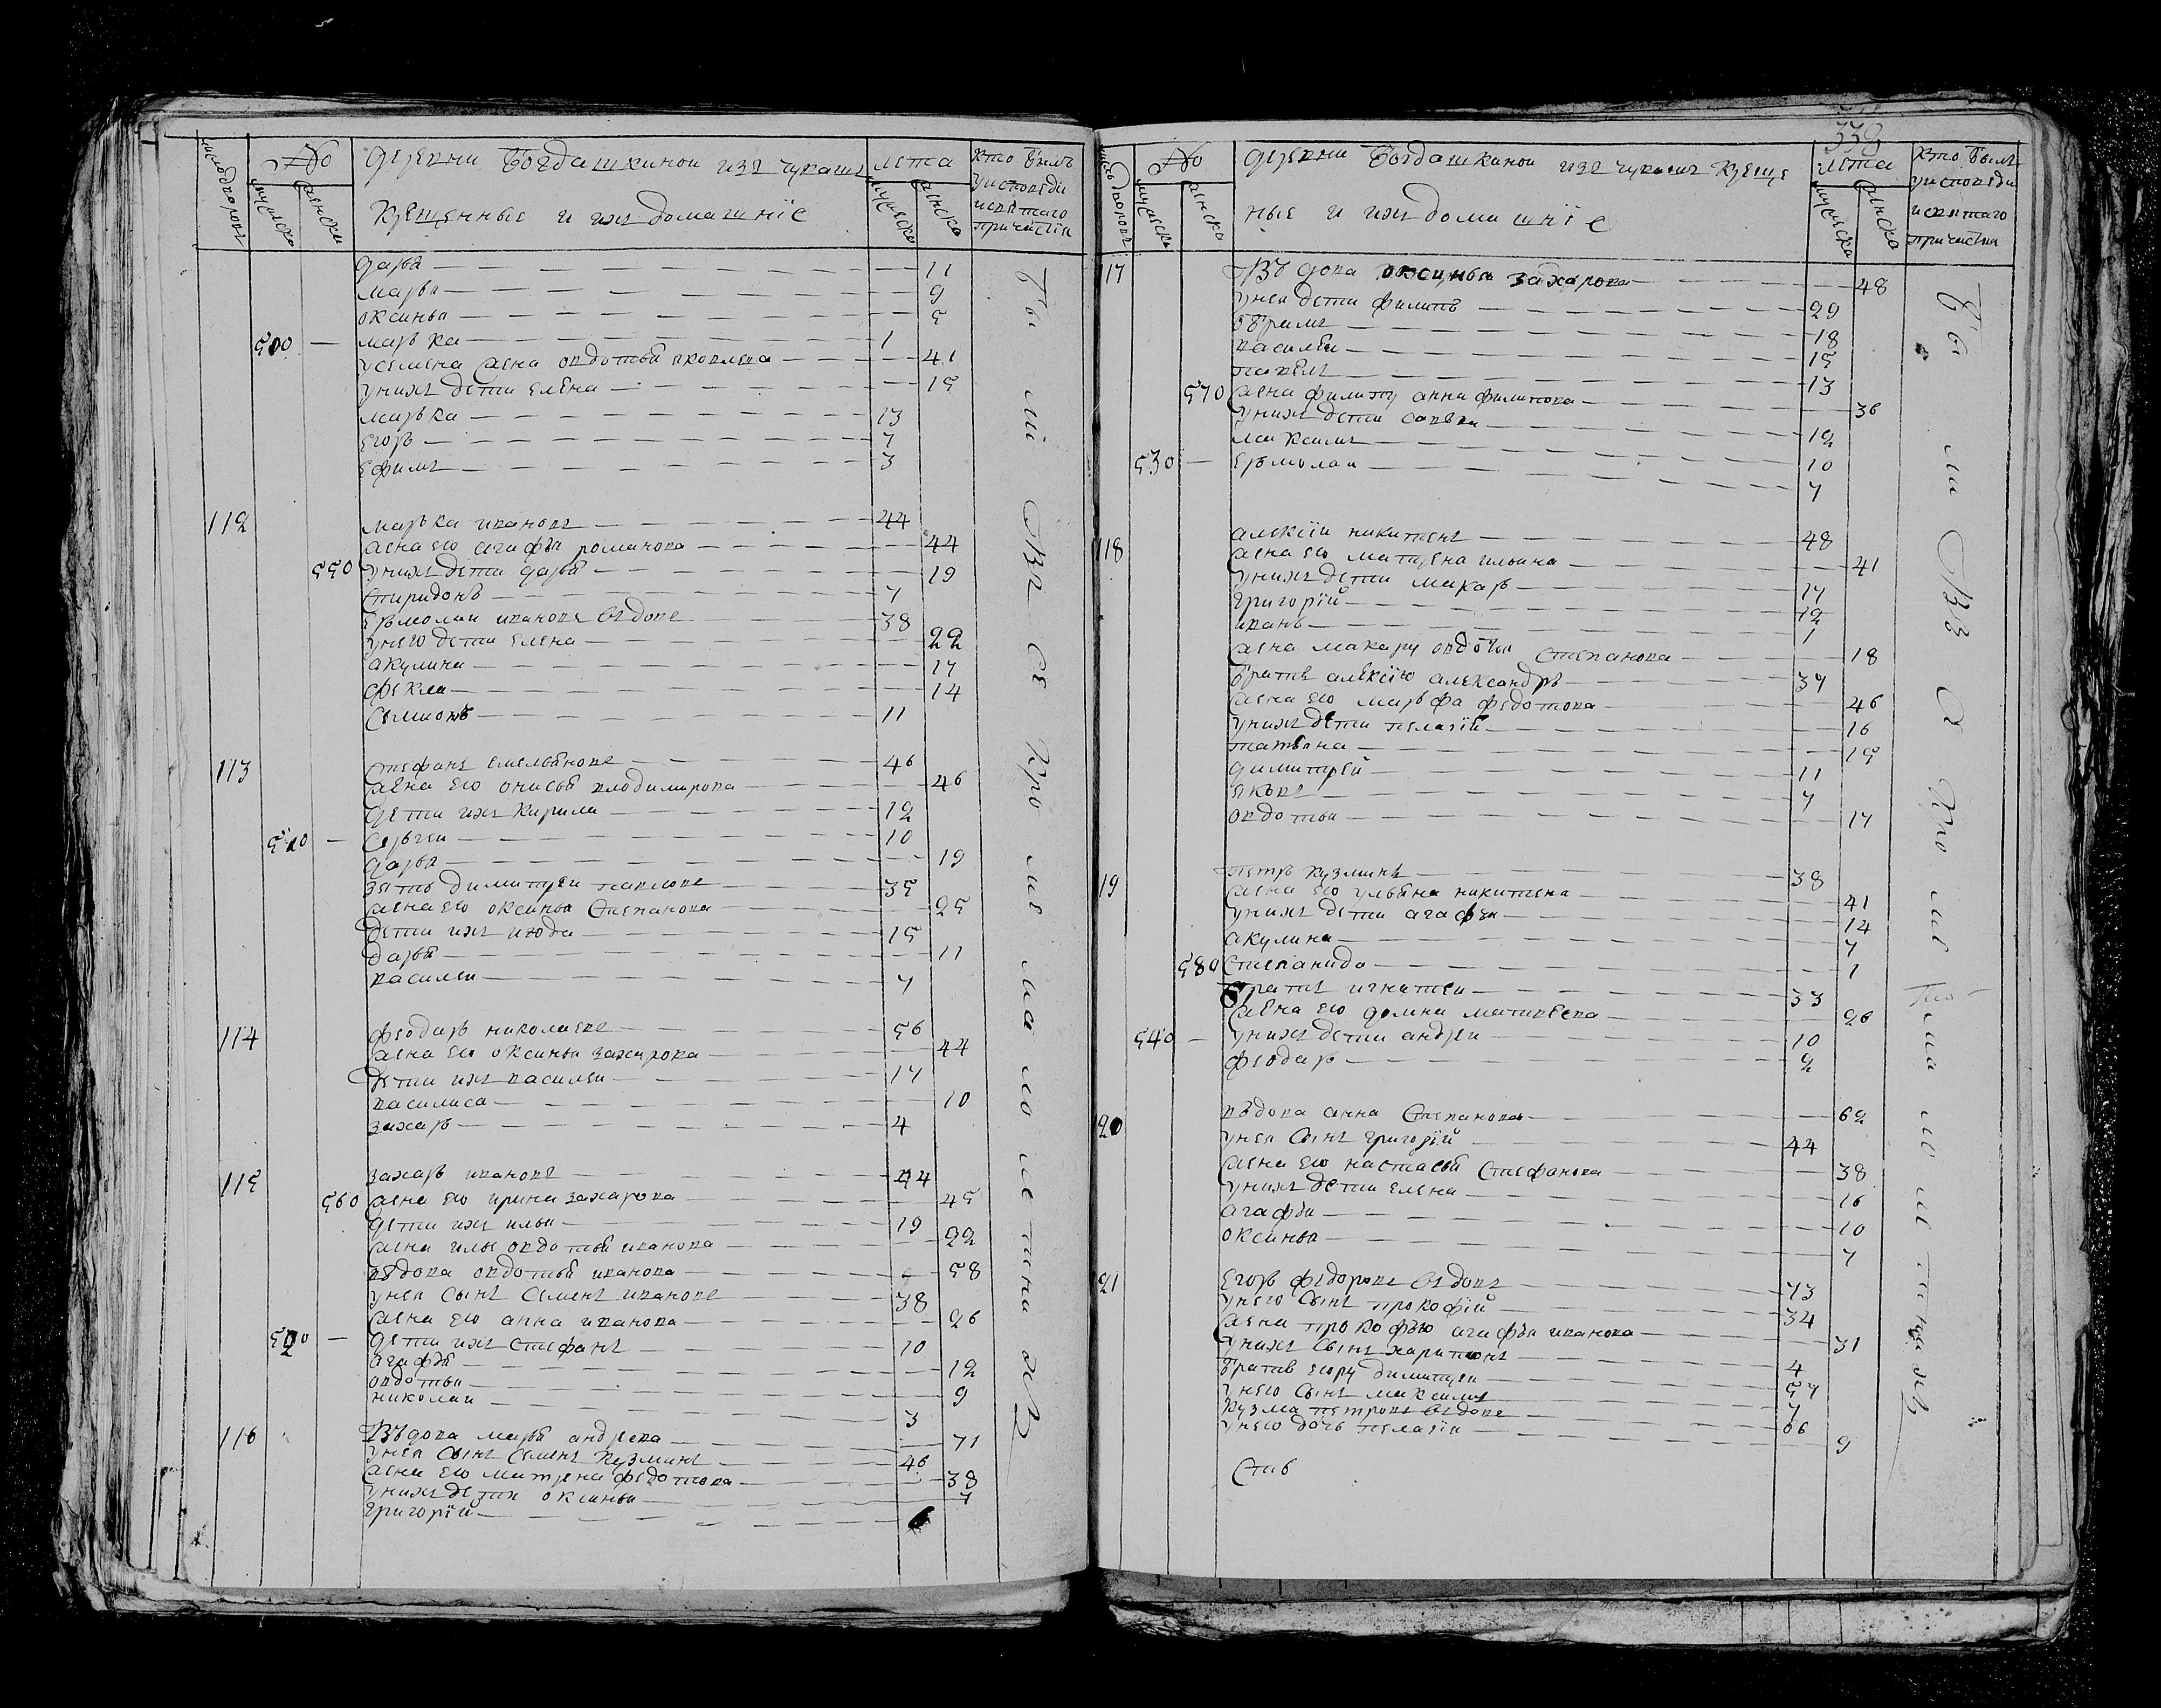 деревни Богдашкиной изъ чувашъ
крещенныѣ и ихъ домашнїе
число дворовъ
№
мужеска
женска
лета
мужеска
женска
кто былъ
у исповеди
и святаго
причастїя
дарья — 11
марья — 9
оксинья — 5
500 — марька — 1
у семена жена овдотья яковлева — 41
у нихъ дети елена — 15
марька — 13
егоръ — 7
ефимъ — 3
112 марька ивановъ — 44
жена ево агафья романова — 44
550 у нихъ дети дарья — 19
спиридонъ — 7
ермолаи ивановъ вдовъ — 38
у него дети елена — 22
акулина — 17
фекла — 14
семионъ — 11
113 стефанъ емельяновъ — 46
жена ево онисья володимирова — 46
дети ихъ кирила — 12
510 — сергеи — 10
дарья — 19
зять димитреи павловъ — 35
жена ево оксинья степанова — 25
дети ихъ июда — 15
дарья — 11
василеи — 7
114 феодаръ николаевъ — 56
жена ево оксинья захарова — 44
дети ихъ василеи — 17
василиса — 10
захаръ — 4
115 захаръ ивановъ — 44
560 жена ево ирина захарова — 45
дети ихъ илья — 19
жена илье овдотья иванова — 22
вдова овдотья иванова — 58
у нея сынъ семенъ ивановъ — 38
жена ево анна иванова — 26
520 — дети ихъ стефанъ — 10
агафья — 12
овдотья — 9
николаи — 3
116 вдова марья андреева — 71
у нея сынъ семенъ кузминъ — 46
жена ево матрена федотова — 38
у нихъ дети оксинья — 7
григорїй — 6
339
деревни Богдашкиной изъ чувашъ креще
ныѣ и ихъ домашнїе
число дворовъ
№
мужеска
женска
лета
мужеска
женска
кто былъ
у исповеди
и святаго
причастия
117 вдова оксинья захарова — 48
у неи дети филипъ — 29
ефримъ — 18
василеи — 15
павелъ — 13
570 жена филипу анна филипова — 36
у нихъ дети савва — 12
максимъ — 10
530 — ермолаи — 7
118 алексїи никитенъ — 48
жена ево матрена ильина — 41
у нихъ дети макаръ — 17
григорїй — 12
иванъ — 1
жена макару овдотья степанова — 18
братъ алексїю александръ — 37
жена ево марфа федотова — 46
у нихъ дети пелагїя — 16
татьяна — 15
димитрей — 11
яковъ — 7
овдотья — 17
119 петръ кузминъ — 38
жена ево ульяна никитена — 41
у нихъ дети агафья — 14
акулина — 7
580 степанида — 1
братъ игнатеи — 33
жена ево домна матвеева — 26
540 — у нихъ дети андреи — 10
феодаръ — 2
120 вдова анна степанова — 62
у нея сынъ григорїй — 44
жена ево настасья стефанова — 38
у нихъ дети елена — 16
агафья — 10
оксинья — 7
121 егоръ федоровъ вдовъ — 73
у него сынъ прокофїй — 34
жена прокофью агафья иванова — 31
у нихъ сынъ харитонъ — 4
братъ егору димитреи — 57
у него сынъ максимъ — 7
кузма петровъ вдовъ — 66
у него дочь пелагїя — 9
Стив